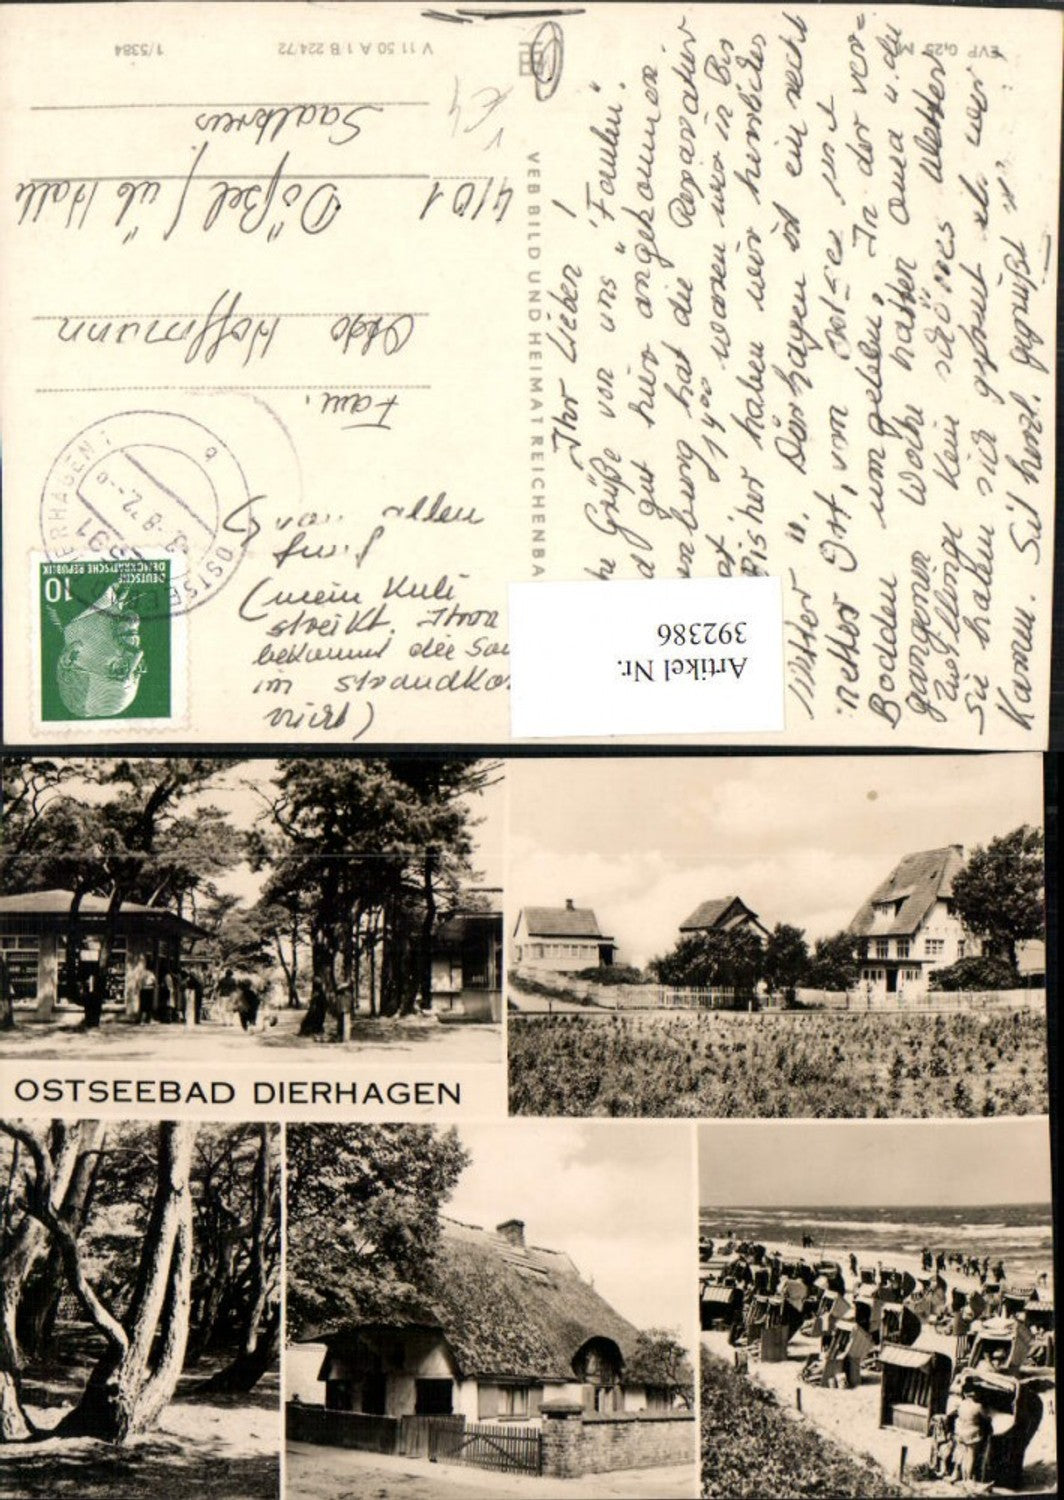 EVP 0,25 M
V 11 50 A 1 B 224/72
1/5384
VEB BILD UND HEIMAT REICHENBA
Ihr Lieben!
he Grüße von uns "Faulen".
d gut hier angekommen
burg hat die Reparatur
waren wir in
Bisher haben wir herrliches
Wetter u. Dierhagen ist ein recht
netter Ort, vom Ostsee und
Bodden umgeben. In der ver=
gangenen Woche hatten Oma u. die
Zwillinge kein schönes Wetter
Sie haben sich gefreut als wir
kamen. Seid herzl. gegrüßt
von allen
fünf
(mein Kuli
streikt. Ihm
bekommt die
im Strandko
nicht)
Fam.
Otto Hoffmann
4101
Dößel / üb Halle
Saalkreis
OSTSEEBAD DIERHAGEN
2591
-8.72.-
DEUTSCHE
DEMOKRATISCHE REPUBLIK
10
Artikel Nr.
392386
OSTSEEBAD DIERHAGEN